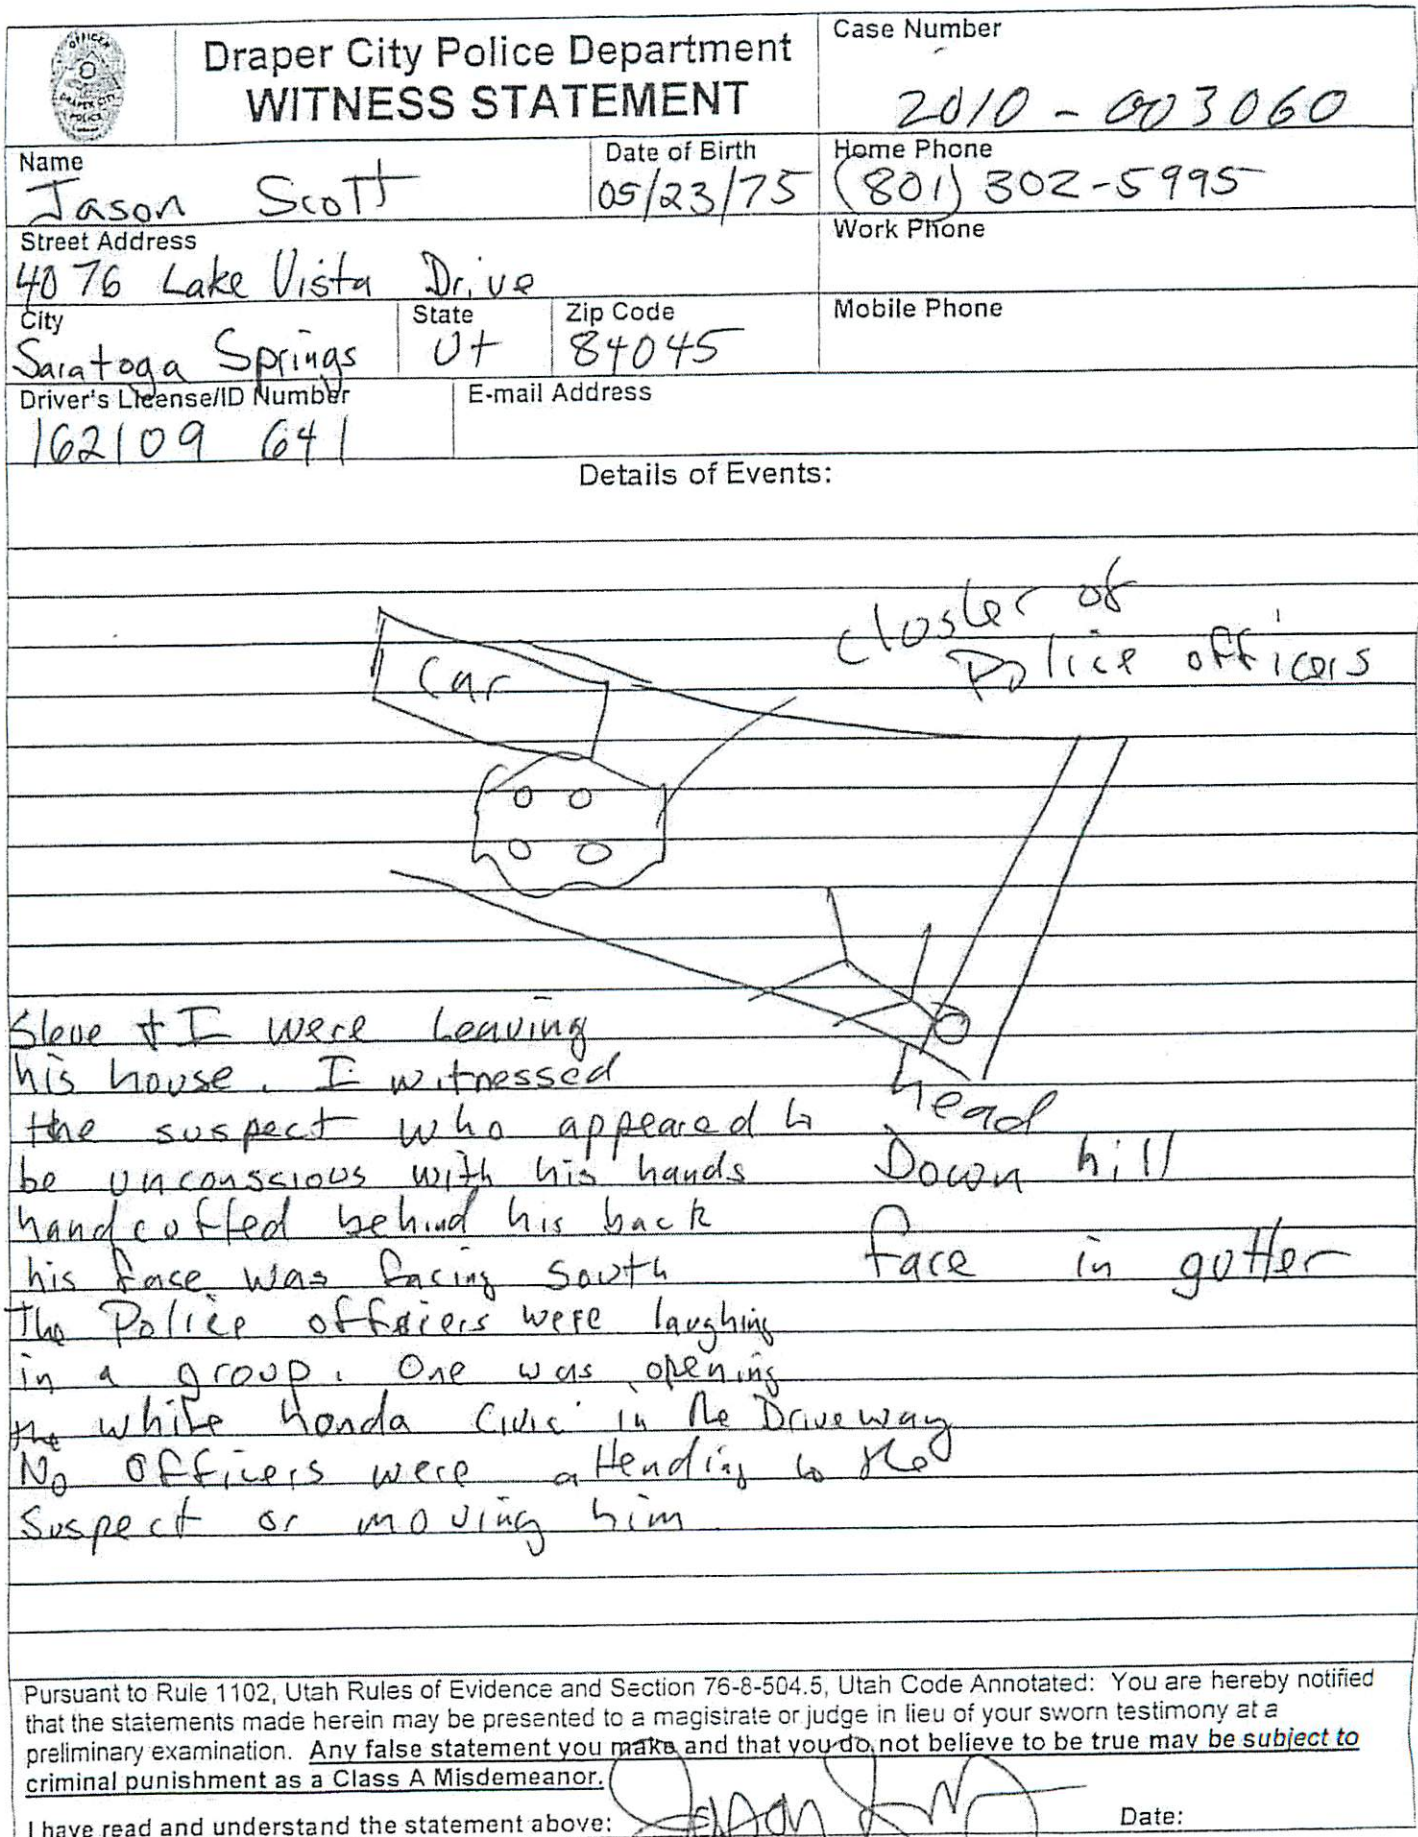 OFFICER
DRAPER CITY
POLICE
Draper City Police Department
WITNESS STATEMENT
Case Number
2010 - 003060
Name
Jason Scott
Date of Birth
05/23/75
Home Phone
(801) 302-5995
Street Address
4076 Lake Vista Drive
Work Phone
City
Saratoga Springs
State
Ut
Zip Code
84045
Mobile Phone
Driver's License/ID Number
162109 641
E-mail Address
Details of Events:
closter of
Police officers
Car
Steve & I were Leaving
his house. I witnessed
the suspect who appeared to
be unconssious with his hands
handcoffed behind his back
his fase was facing south
The Police officiers were laughing
in a group. One was opening
the white honda civic in the Driveway
No Officers were attending to the
Suspect or moving him.
head
Down hill
face in gutter
Pursuant to Rule 1102, Utah Rules of Evidence and Section 76-8-504.5, Utah Code Annotated: You are hereby notified
that the statements made herein may be presented to a magistrate or judge in lieu of your sworn testimony at a
preliminary examination. Any false statement you make and that you do not believe to be true may be subject to
criminal punishment as a Class A Misdemeanor.
I have read and understand the statement above: Jason Scott
Date: